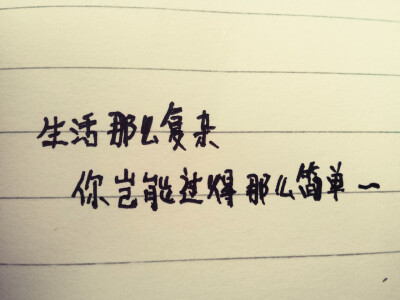 生活那么复杂
你岂能过得那么简单~